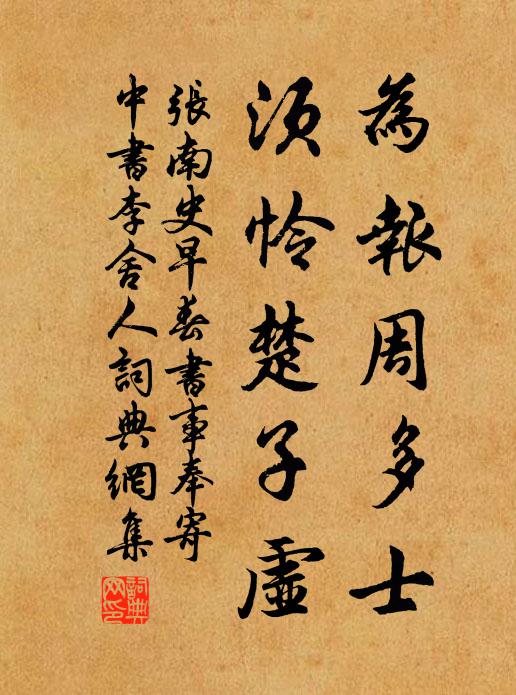 為報周多士
須怜楚子虛
張南史早春書事奉寄
中書李舍人詞典網集
詞典網印